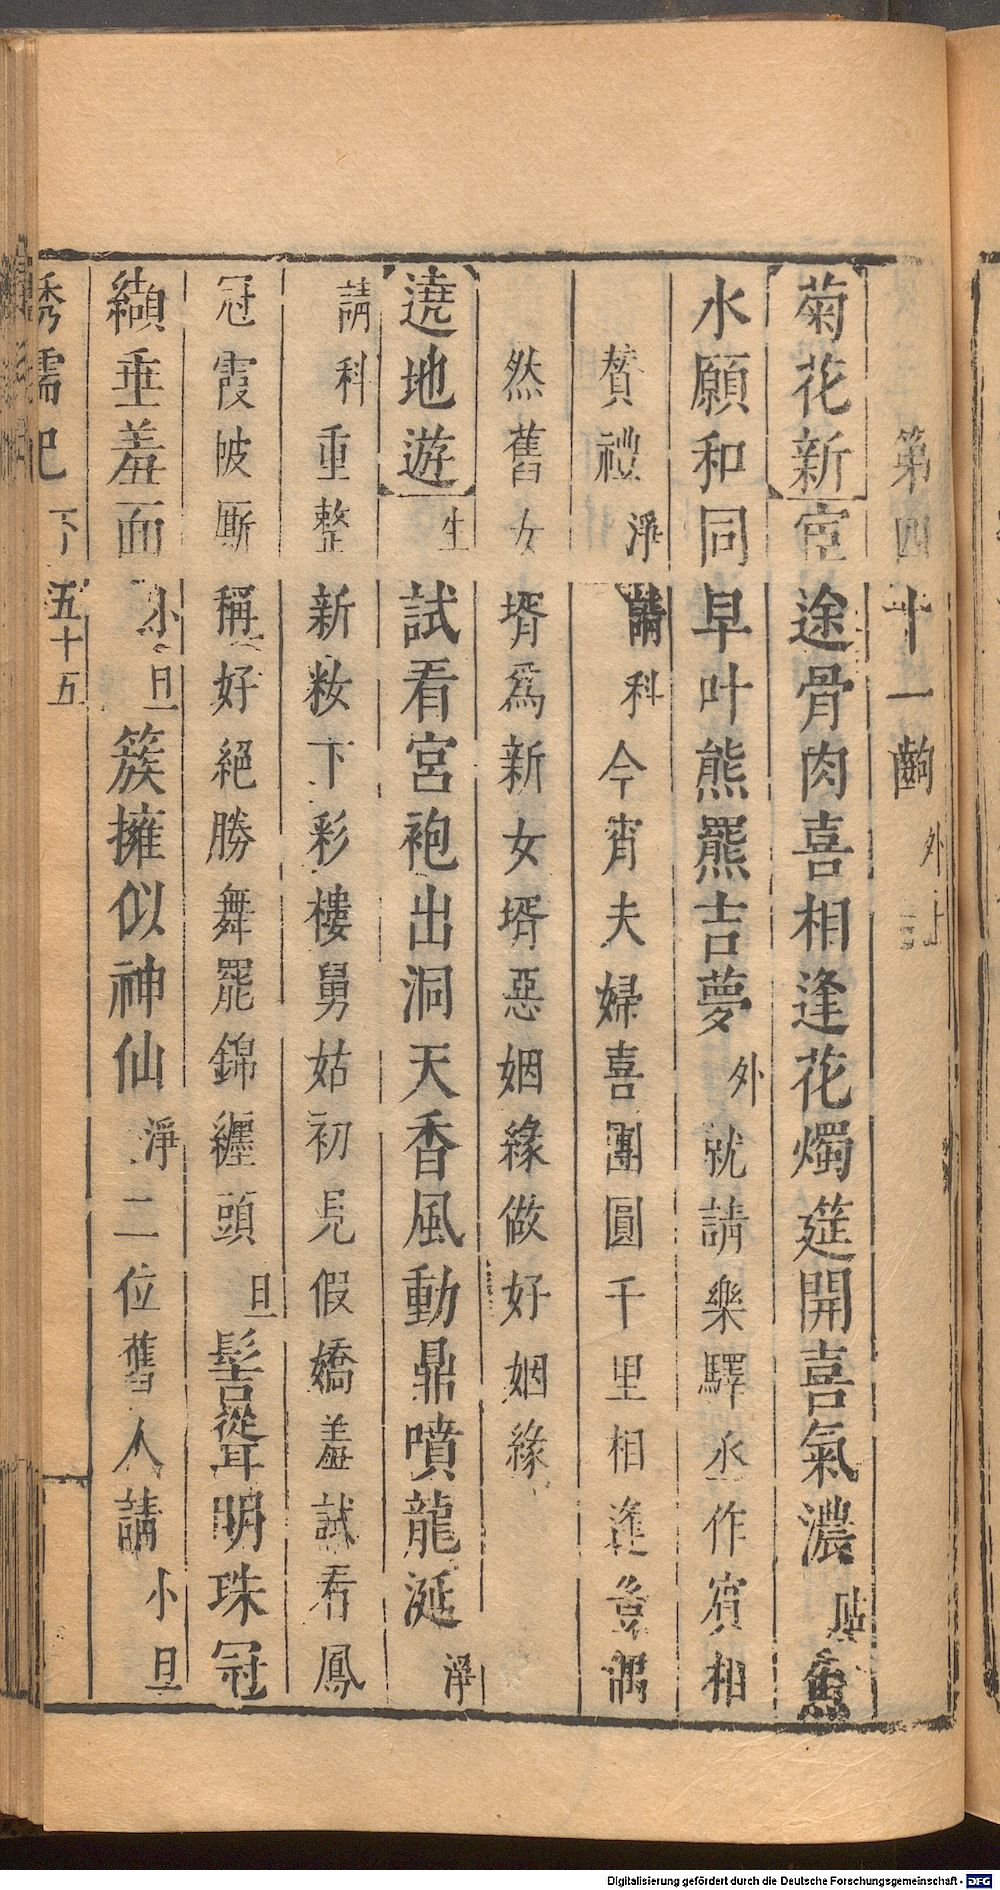 第四十一齣 外上
菊花新 宦途骨肉喜相逢花燭筵開喜氣濃 貼 魚
水願和同早叶熊羆吉夢 外 就請樂驛丞作賓相
贊禮 淨 請科 今宵夫婦喜團圓千里相逢豈偶
然舊女壻爲新女壻惡姻緣做好姻緣
遶地遊 生 試看宮袍出洞天香風動鼎噴龍涎 淨
請科 重整新妝下彩樓舅姑初見假嬌羞試看鳳
冠霞帔厮稱好絕勝舞罷錦纏頭 旦 髻聳明珠冠
纈垂羞面 小旦 簇擁似神仙 淨 二位舊人請 小旦
繡襦記 下 五十五
Digitalisierung gefördert durch die Deutsche Forschungsgemeinschaft - DFG